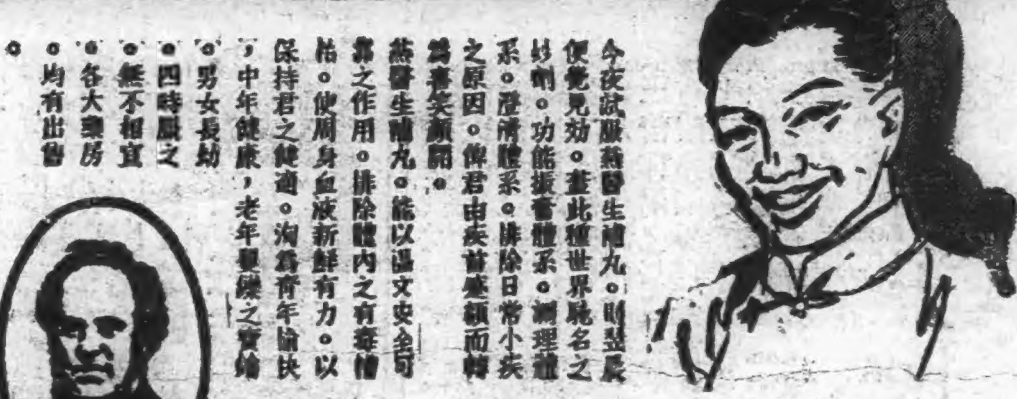 今夜試服燕醫生補丸。則翌晨
便覺見効。蓋此種世界馳名之
妙劑。功能振奮體系。調理體
系。澄清體系。排除日常小疾
之原因。俾君由疾首蹙額而轉
爲喜笑顏開。
燕醫生補丸。能以溫文安全可
靠之作用。排除體內之有毒糟
粕。使周身血液新鮮有力。以
保持君之健適。洵爲青年愉快
，中年健康，老年矍鑠之寶鑰
。男女長幼
。四時服之
。無不相宜
。各大藥房
。均有出售
。